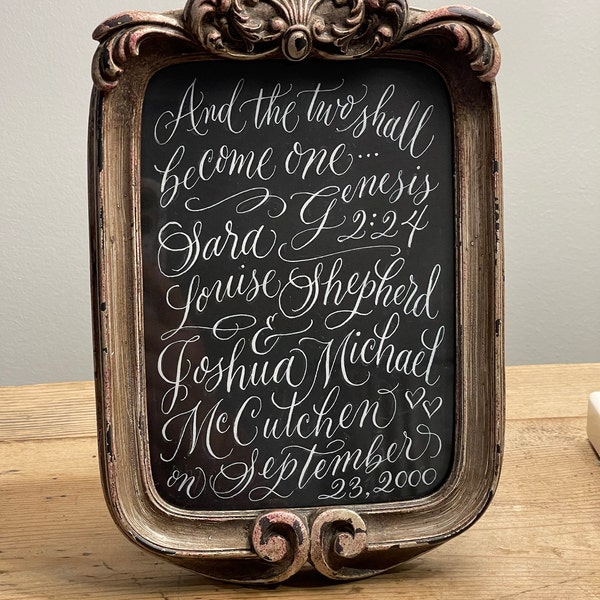 And the two shall
become one...
Genesis
2:24
Sara
Louise Shepherd
&
Joshua Michael
McCutchen
on September
23, 2000